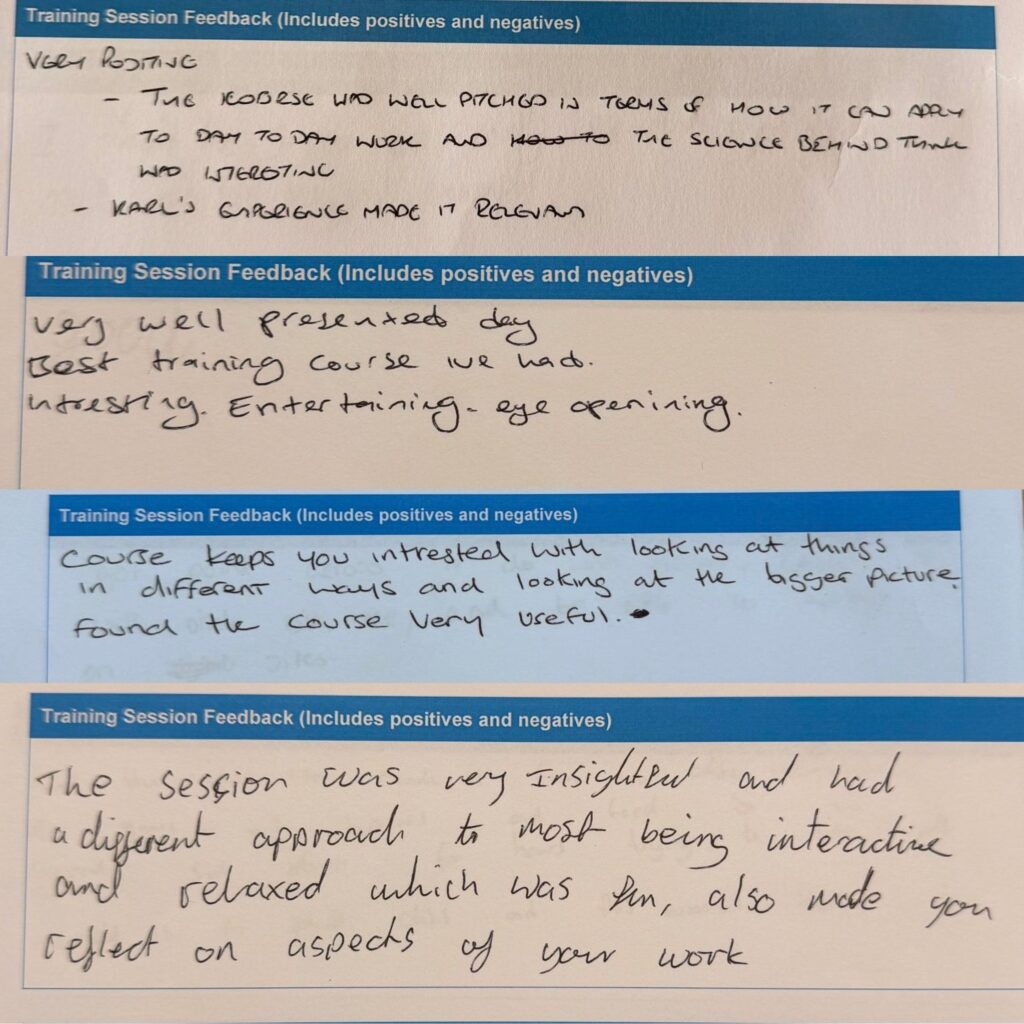 Training Session Feedback (Includes positives and negatives)
VERY POSITIVE
- THE COURSE WAS WELL PITCHED IN TERMS OF HOW IT CAN APPLY
TO DAY TO DAY WORK AND HOW TO THE SCIENCE BEHIND THINK
WAS INTERESTING
- KARL'S EXPERIENCE MADE IT RELEVANT
Training Session Feedback (Includes positives and negatives)
Very well presented day
Best training course ive had.
intresting. Entertaining. eye openining.
Training Session Feedback (Includes positives and negatives)
Course keeps you intrested with looking at things
in different ways and looking at the bigger picture.
found the course very useful.
Training Session Feedback (Includes positives and negatives)
The session was very Insightful and had
a different approach to most being interactive
and relaxed which was fun, also made you
reflect on aspects of your work